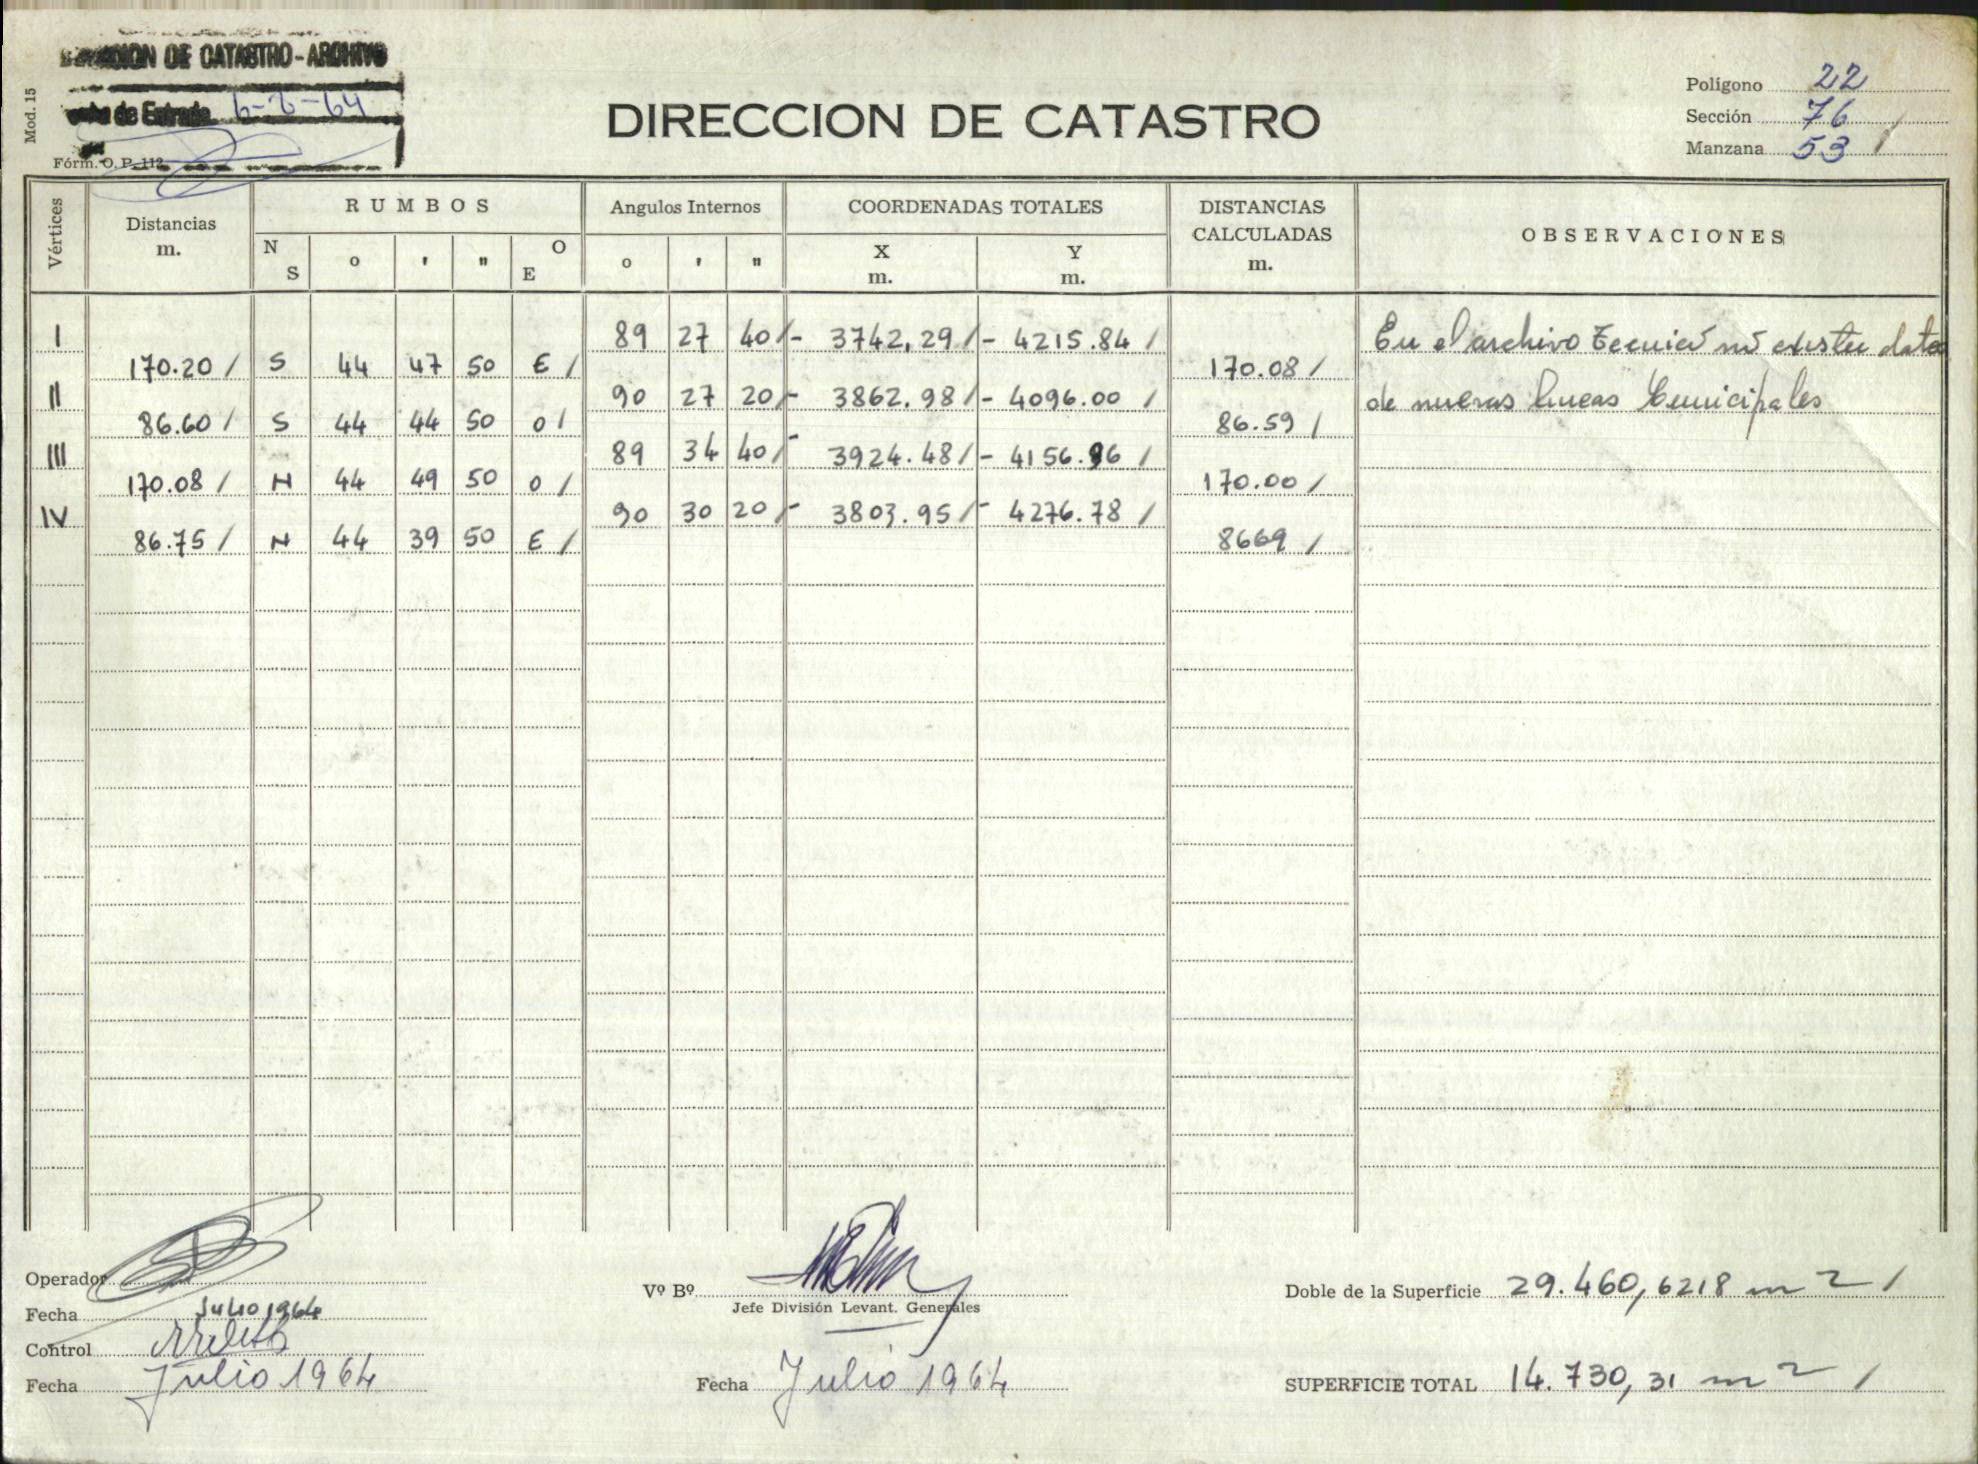 DIRECCION DE CATASTRO - ARCHIVO
de Entrada 6-8-64
Mod. 15
Fórm. O. P. 112
DIRECCION DE CATASTRO
Polígono 22
Sección 76
Manzana 53 /
Vértices Distancias m. RUMBOS N S o ' " O E Angulos Internos o ' " COORDENADAS TOTALES X m. Y m. DISTANCIAS CALCULADAS m. OBSERVACIONES
I 89 27 40 / - 3742,29 / - 4215.84 / En el archivo Tecnico no existen datos
170.20 / S 44 47 50 E / 170.08 /
II 90 27 20 / - 3862.98 / - 4096.00 / de nuevas lineas Municipales
86.60 / S 44 44 50 O / 86.59 /
III 89 34 40 / - 3924.48 / - 4156.96 /
170.08 / N 44 49 50 O / 170.00 /
IV 90 30 20 / - 3803.95 / - 4276.78 /
86.75 / N 44 39 50 E / 8669 /
Operador
Fecha Julio 1964
Control
Fecha Julio 1964
Vº Bº
Jefe División Levant. Generales
Fecha Julio 1964
Doble de la Superficie 29.460,6218 m 2 /
SUPERFICIE TOTAL 14.730,31 m 2 /